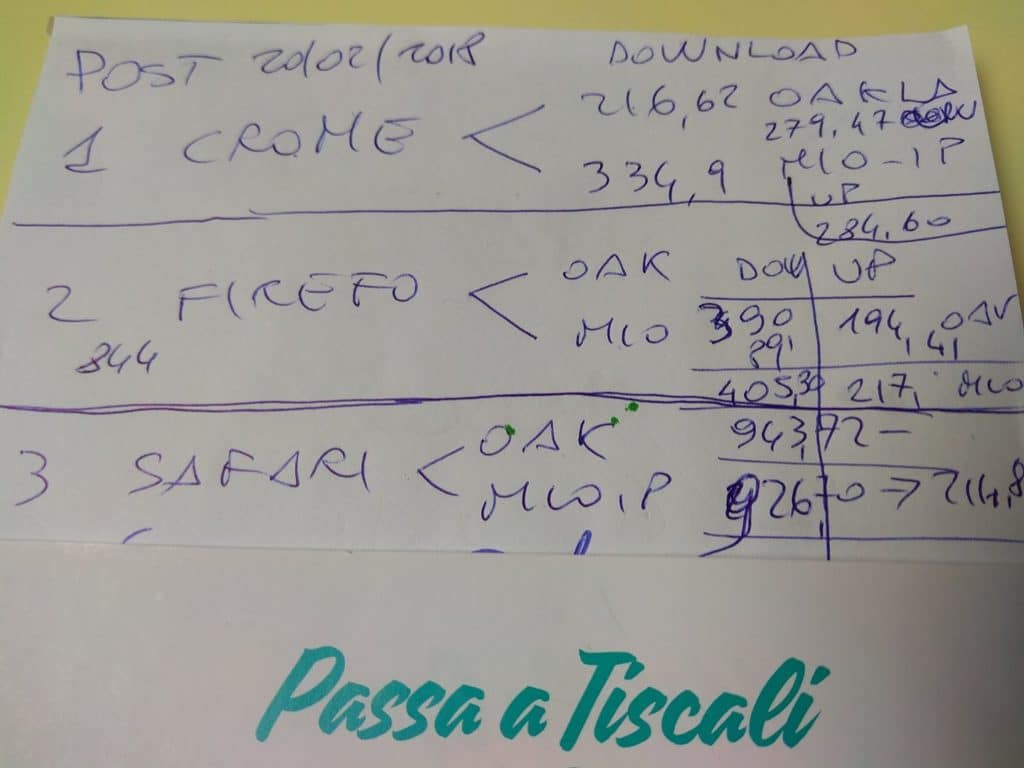 POST 20/02/2018 DOWNLOAD
1 CROME < 216,62 OAKLA
279,47
334,9 MIO-IP
UP
284,60
2 FIREFO < OAK DOW UP
MIO 390 194, OAK
844 891 41
405,30 217, MIO
3 SAFARI < OAK 943,72 -
MIO IP 926,70 → 214,8
Passa a Tiscali